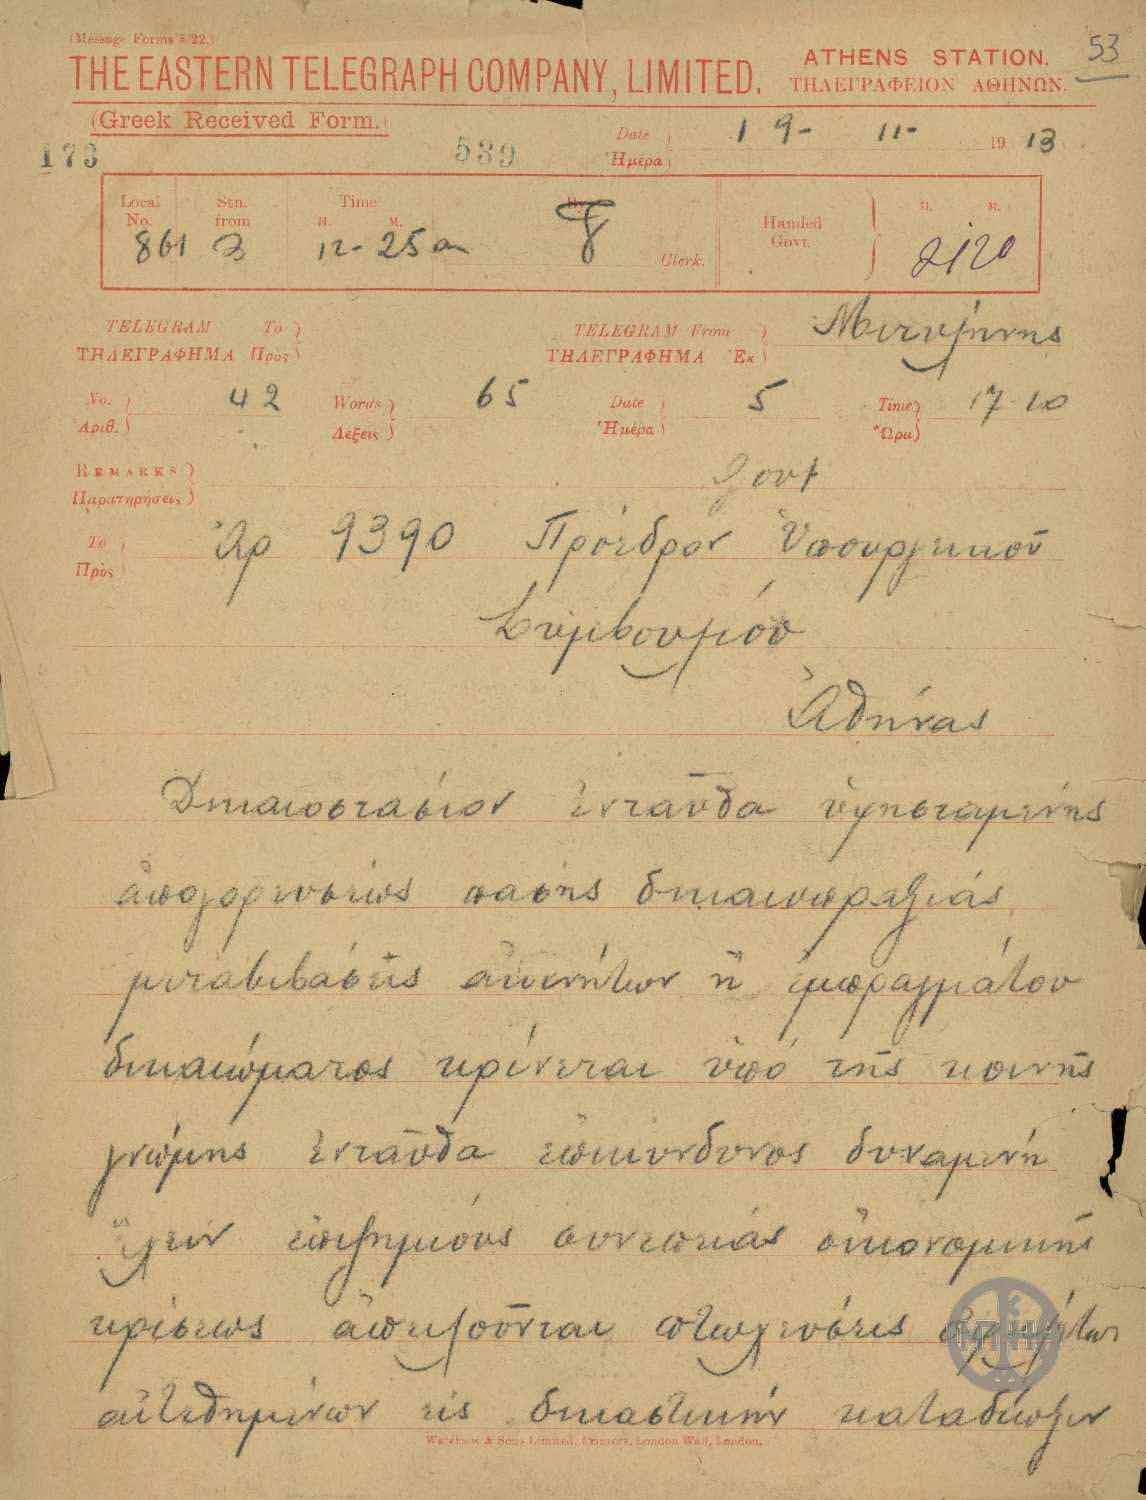 (Message Forms 5/22.)
THE EASTERN TELEGRAPH COMPANY, LIMITED.
ATHENS STATION.
ΤΗΛΕΓΡΑΦΕΙΟΝ ΑΘΗΝΩΝ.
53
(Greek Received Form.)
173
539
Date
Ἡμέρα
19- 11- 1913
Local No.
Stn. from
Time
H. M.
By
Clerk.
Handed Govt.
H. M.
861
12-25 a
2/20
TELEGRAM To
ΤΗΛΕΓΡΑΦΗΜΑ Πρὸς
TELEGRAM From
ΤΗΛΕΓΡΑΦΗΜΑ Ἐκ
Μιτυλήνης
No. Ἀριθ. 42
Words Λέξεις 65
Date Ἡμέρα 5
Time Ὥρα 17 10
REMARKS
Παρατηρήσεις
Govt
To
Πρὸς
Ἀρ 9390 Πρόεδρον Ὑπουργικοῦ
Συμβουλίου
Ἀθήνας
Δικαιοστασίον ἐνταῦθα ὑφισταμένης
ἀπαγορεύσεως πάσης δικαιοπραξίας
μεταβιβάσεως ἀκινήτων ἢ ἐμπραγμάτου
δικαιώματος κρίνεται ὑπό τῆς κοινῆς
γνώμης ἐνταῦθα ἐπικίνδυνος δυναμένη
ἔχειν ἐπιζημίους συνεπείας οἰκονομικῆς
κρίσεως ἀπειλοῦνται πτωχεύσεις
ἐκτεθημένων εἰς δικαστικήν καταδίωξιν
Waterlow & Sons Limited, Printers, London Wall, London.